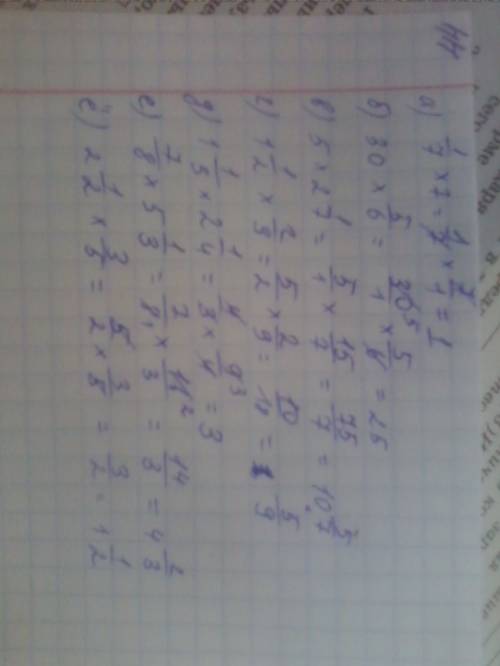 44
а) 1/7 × 7 = 1/7 × 7/1 = 1
б) 30 × 5/6 = 30⁵/1 × 5/6 = 25
в) 5 × 2 1/7 = 5/1 × 15/7 = 75/7 = 10 5/7
г) 1 1/2 × 2/9 = 5/2 × 2/9 = 10/18 = 5/9
д) 1 1/3 × 2 1/4 = 4/3 × 9³/4 = 3
е) 7/8 × 5 1/3 = 7/8₁ × 16²/3 = 14/3 = 4 2/3
ё) 2 1/2 × 3/5 = 5/2 × 3/5 = 3/2 = 1 1/2